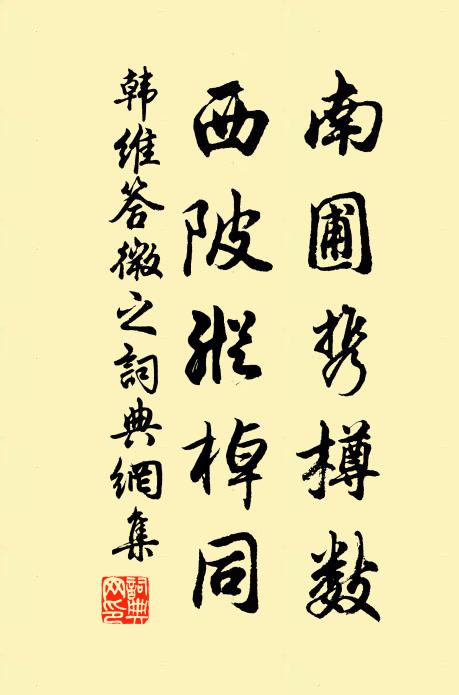 南圃携樽数
西陂縱棹同
韩维答微之詞典網集
詞典網印